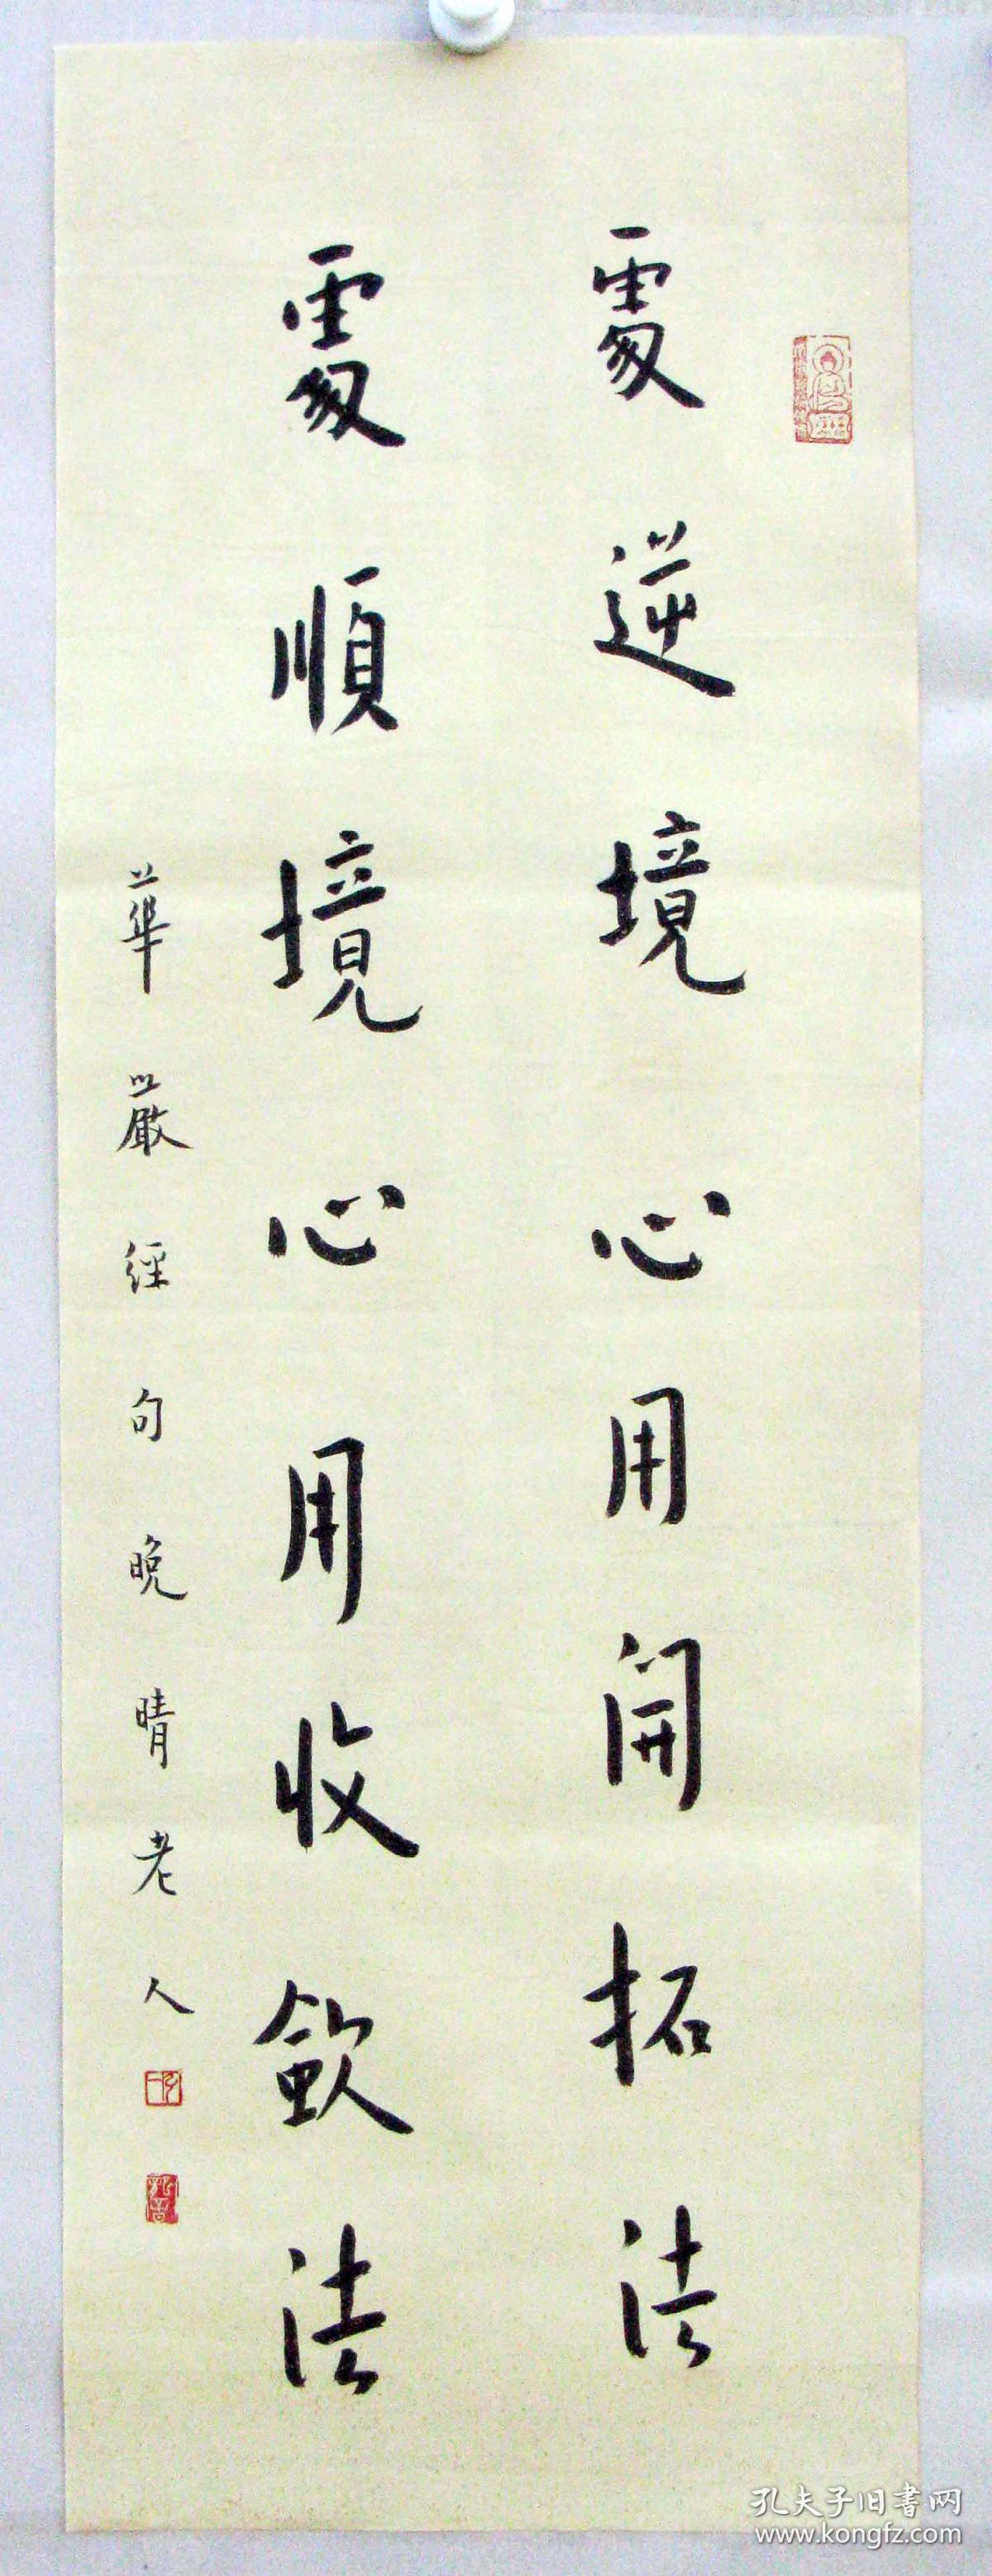 處逆境心用開拓法
處順境心用收斂法
華嚴經句晚晴老人
孔夫子旧書网
www.kongfz.com